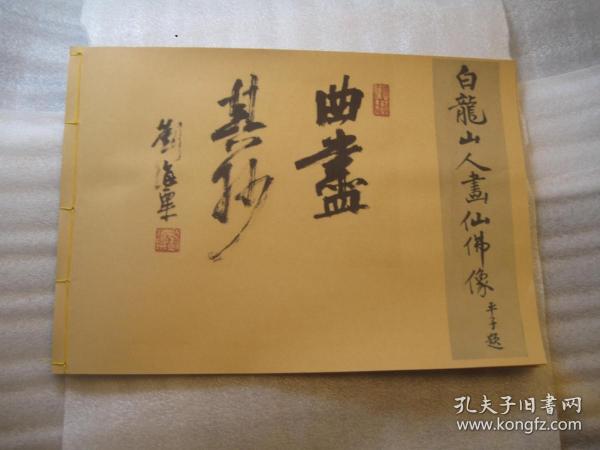 白龍山人畫仙佛像
平子題
曲盡
其妙
劉海粟
孔夫子旧书网
www.kongfz.com